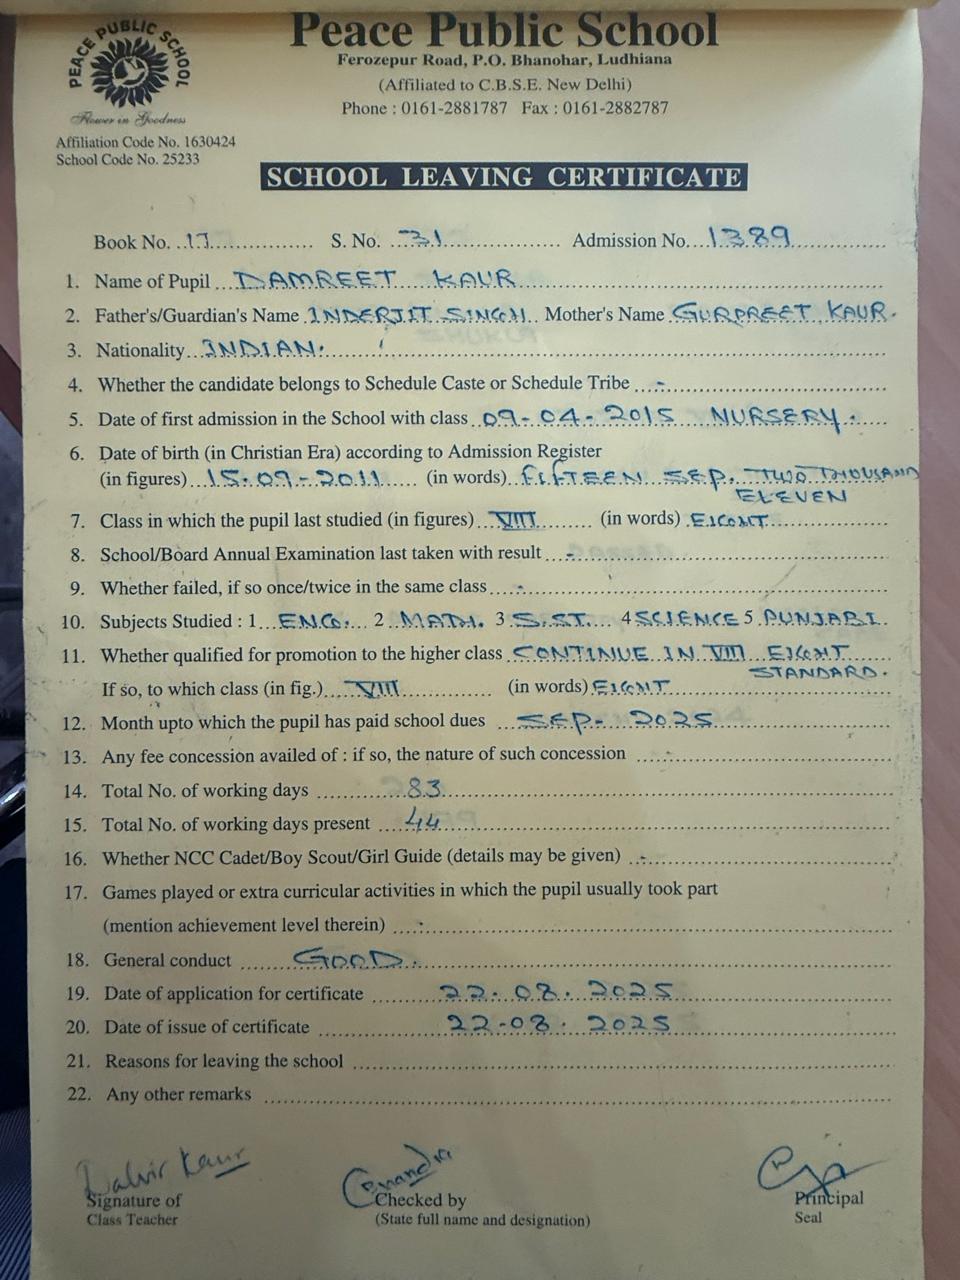 PEACE PUBLIC SCHOOL
Flower in Goodness
Peace Public School
Ferozepur Road, P.O. Bhanohar, Ludhiana
(Affiliated to C.B.S.E. New Delhi)
Phone : 0161-2881787 Fax : 0161-2882787
Affiliation Code No. 1630424
School Code No. 25233
SCHOOL LEAVING CERTIFICATE
Book No. 17 S. No. 31 Admission No. 1389
1. Name of Pupil DAMREET KAUR
2. Father's/Guardian's Name INDERJIT SINGH Mother's Name GURPREET KAUR.
3. Nationality INDIAN.
4. Whether the candidate belongs to Schedule Caste or Schedule Tribe -
5. Date of first admission in the School with class 09-04-2015 NURSERY.
6. Date of birth (in Christian Era) according to Admission Register
(in figures) 15-09-2011 (in words) FIFTEEN SEP. TWO THOUSAND
ELEVEN
7. Class in which the pupil last studied (in figures) VIII (in words) EIGHT
8. School/Board Annual Examination last taken with result -
9. Whether failed, if so once/twice in the same class -
10. Subjects Studied : 1 ENG. 2 MATH. 3 S.ST. 4 SCIENCE 5 PUNJABI
11. Whether qualified for promotion to the higher class CONTINUE IN VIII EIGHT
STANDARD.
If so, to which class (in fig.) VIII (in words) EIGHT
12. Month upto which the pupil has paid school dues SEP- 2025
13. Any fee concession availed of : if so, the nature of such concession -
14. Total No. of working days 83
15. Total No. of working days present 44
16. Whether NCC Cadet/Boy Scout/Girl Guide (details may be given) -
17. Games played or extra curricular activities in which the pupil usually took part
(mention achievement level therein) -
18. General conduct GOOD.
19. Date of application for certificate 22-08-2025
20. Date of issue of certificate 22-08-2025
21. Reasons for leaving the school
22. Any other remarks
Dalvir Kaur
Signature of
Class Teacher
Checked by
(State full name and designation)
Principal
Seal